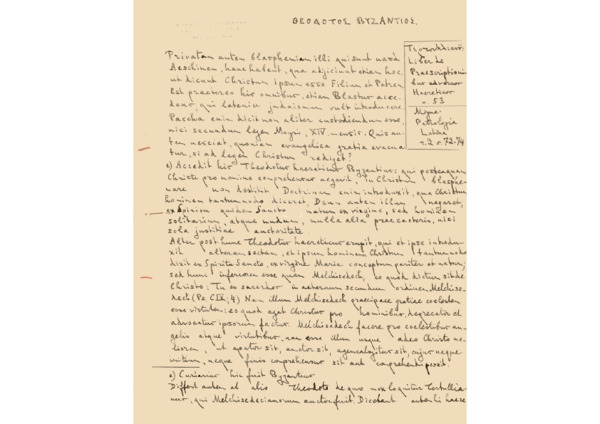 ΘΕΟΔΟΤΟΣ ΒΥΖΑΝΤΙΟΣ.
Privatam autem blasphemiam illi qui sunt κατὰ
Aeschinem, hanc habent, qua adjiciunt etiam hoc,
ut dicant Christum ipsum esse Filium et Patrem
Est praeterea his omnibus, etiam Blastus acce-
dens, qui latenter judaismum vult introducere
Pascha enim dicit non aliter custodiendum esse,
nisi secundum legem Moysi, XIV. mensis. Quis au-
tem nesciat, quoniam evangelica gratia evacua
tur, si ad legem Christum rediget?
Liber de
Praescriptioni
bus adversus
Haereticos
c. 53
Migne
Patrologia
Latina
τ. 2 σ. 72-74
Accedit his Theodotus haereticus Byzantius; qui posteaquam
Christi pro nomine comprehensus negavit, in Christum blasphe-
mare non destitit. Doctrinam enim introduxit, qua Christum
hominem tantummodo diceret, Deum autem illum negaret,
ex Spiritu quidem Sancto natum ex virgine, sed hominem
solitarium, atque nudum, nulla alia prae caeteris, nisi
sola justitiae auctoritate.
Alter post hunc Theodotus haereticus erupit, qui et ipse introdu-
xit alteram sectam, et ipsum hominem Christum tantummodo
dicit ex Spiritu Sancto, ex virgine Maria conceptum pariter et natum,
sed hunc inferiorem esse quam Melchisedech, eo quod dictum sit de
Christo: Tu es sacerdos in aeternum secundum ordinem Melchise-
dech (Ps. CIX, 4) Nam illum Melchisedech praecipuae gratiae caelestem
esse virtutem: eo quod agat Christus pro hominibus, deprecator et
advocatus ipsorum factus. Melchisedech facere pro coelestibus an-
gelis atque virtutibus, nam esse illum usque adeo Christo me-
liorem, ut apator sit, ametor sit, agenealogitus sit, cujus neque
initium, neque finis comprehensus sit aut comprehendi possit.
hic fuit Byzanteus
Differt autem ab alio Theodoto de quo mox loquitur Tertullia-
nus, qui Melchisedecianorum auctor fuit. Dicebant autem hi haere